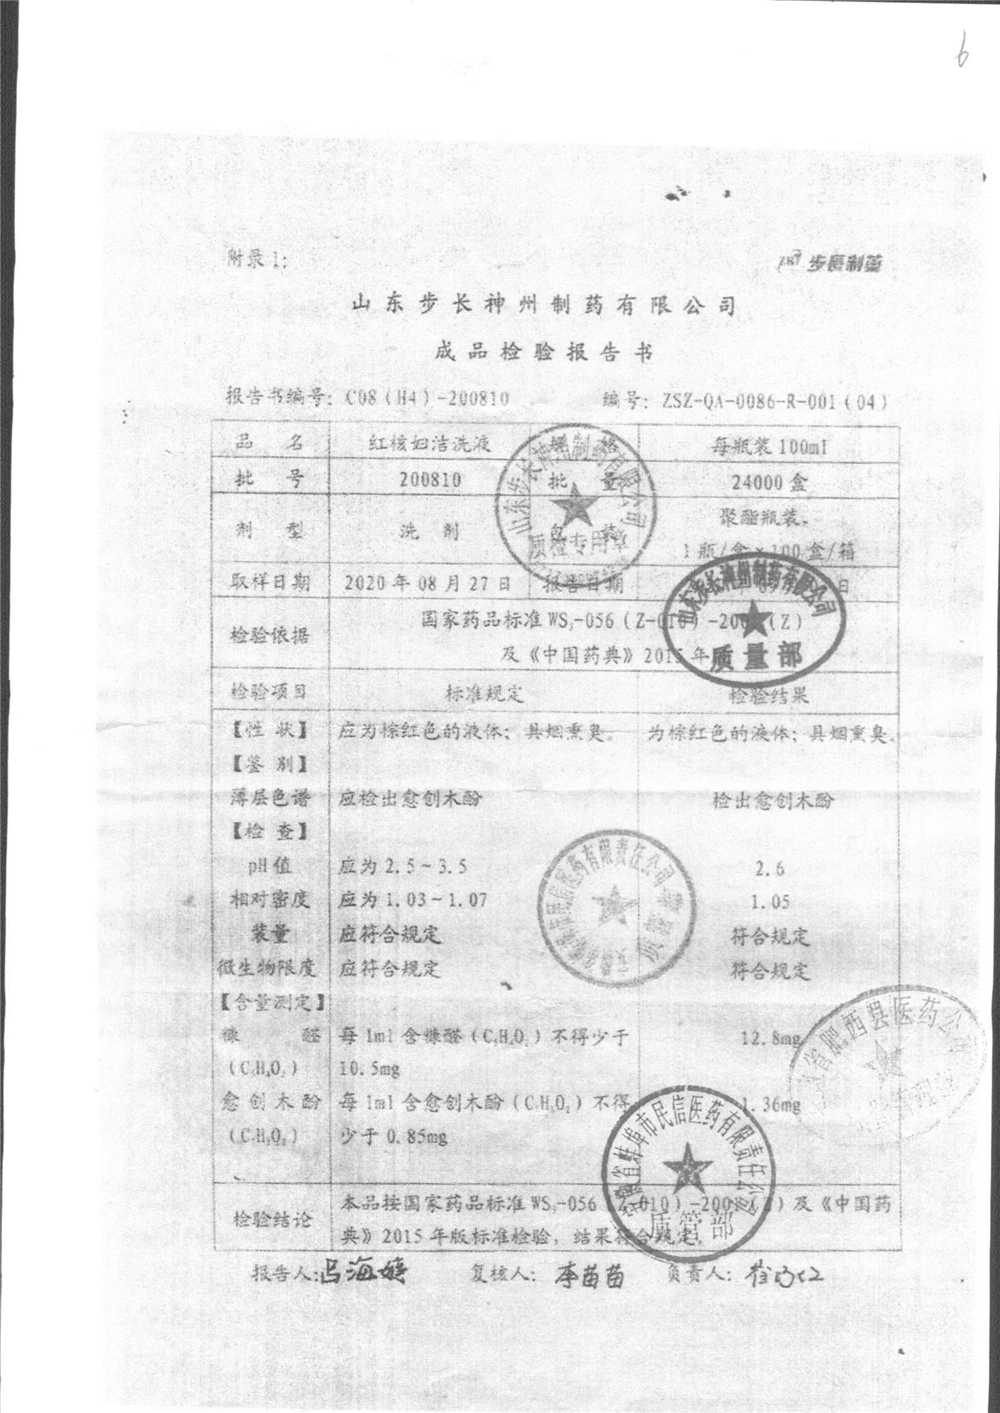 6
附录1:
步长制药
山东步长神州制药有限公司
成品检验报告书
报告书编号: C08(H4)-200810 编号: ZSZ-QA-0086-R-001(04)
品 名 红核妇洁洗液 规 格 每瓶装100ml
批 号 200810 批 量 24000盒
剂 型 洗 剂 包 装 聚酯瓶装、
1瓶/盒×100盒/箱
取样日期 2020年08月27日 报告日期 日
检验依据 国家药品标准WS₃-056(Z-010)-200 (Z)
及《中国药典》2015年
检验项目 标准规定 检验结果
【性 状】 应为棕红色的液体;具烟熏臭。 为棕红色的液体;具烟熏臭。
【鉴 别】
薄层色谱 应检出愈创木酚 检出愈创木酚
【检 查】
pH值 应为2.5~3.5 2.6
相对密度 应为1.03~1.07 1.05
装量 应符合规定 符合规定
微生物限度 应符合规定 符合规定
【含量测定】
糠 醛 每1ml含糠醛(C₅H₄O₂)不得少于 12.8mg
(C₅H₄O₂) 10.5mg
愈创木酚 每1ml含愈创木酚(C₇H₈O₂)不得 1.36mg
(C₇H₈O₂) 少于0.85mg
检验结论 本品按国家药品标准WS₃-056(Z-010)-200 (Z)及《中国药
典》2015年版标准检验,结果符合规定。
报告人: 吕海婷 复核人: 李苗苗 负责人:
山东步长神州制药有限公司
质检专用章
山东步长神州制药有限公司
质量部
民信医药有限责任公司
省肥西县医药公司
安徽省蚌埠市民信医药有限责任公司
质管部